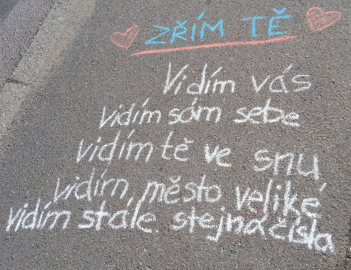 ZŘÍM TĚ
Vidím vás
vidím sám sebe
vidím tě ve snu
vidím město veliké
vidím stále stejná čísla